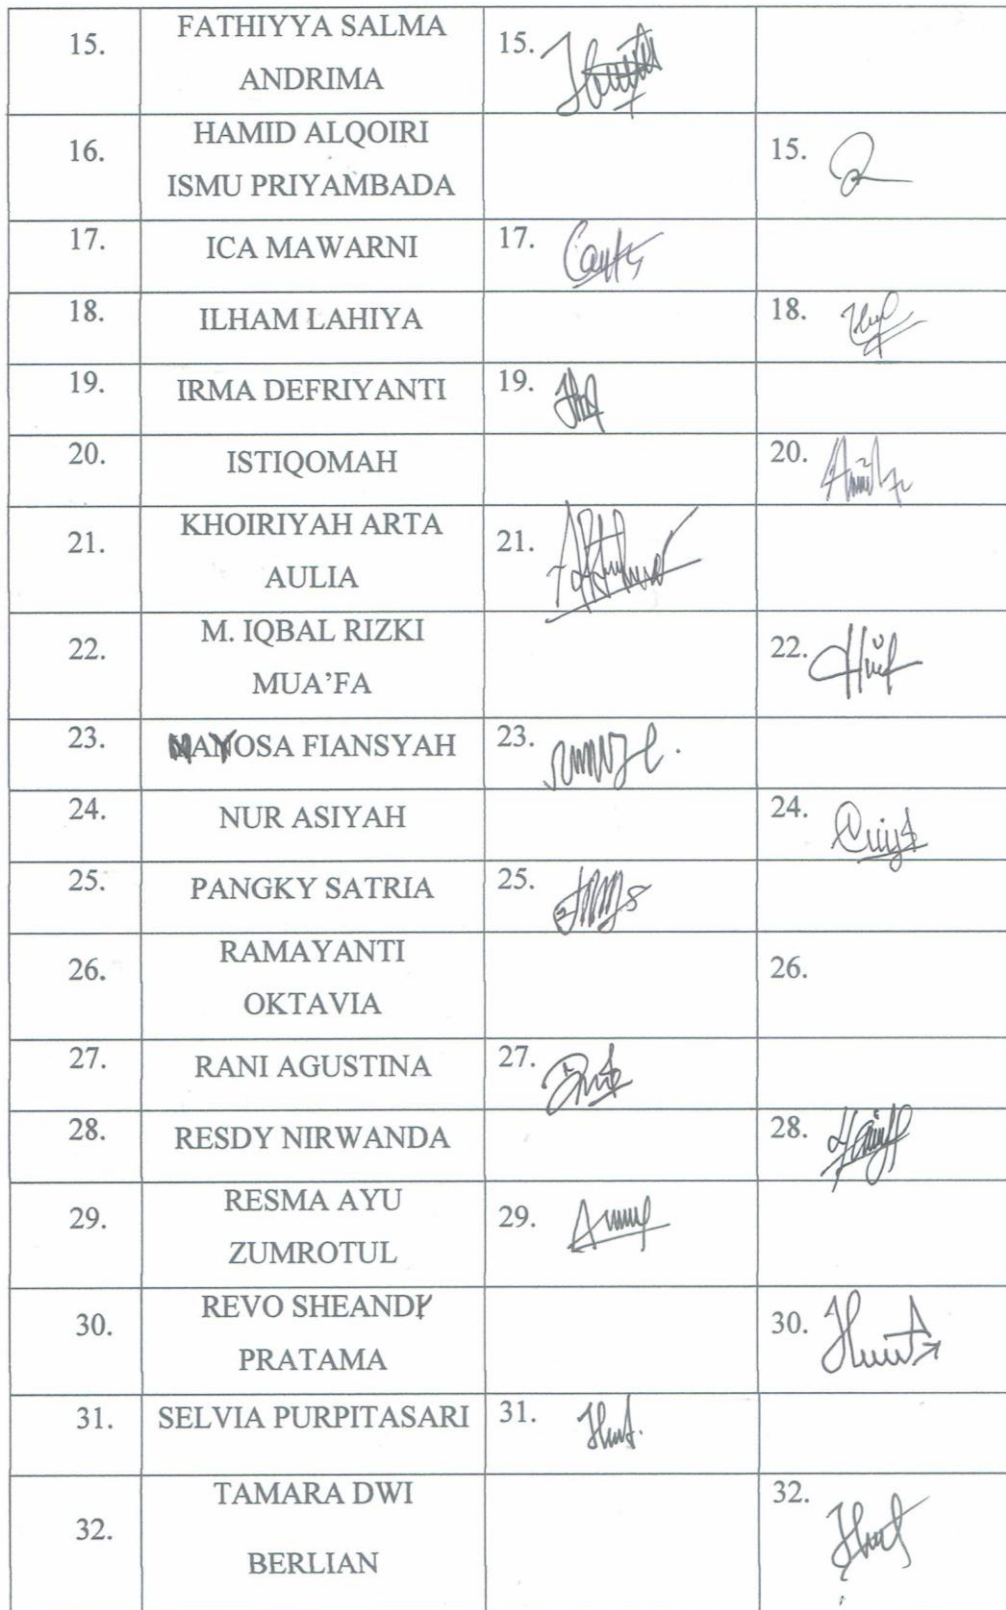 15.
FATHIYYA SALMA
ANDRIMA
15.
16.
HAMID ALQOIRI
ISMU PRIYAMBADA
15.
17.
ICA MAWARNI
17.
18.
ILHAM LAHIYA
18.
19.
IRMA DEFRIYANTI
19.
20.
ISTIQOMAH
20.
21.
KHOIRIYAH ARTA
AULIA
21.
22.
M. IQBAL RIZKI
MUA'FA
22.
23.
NAYOSA FIANSYAH
23.
24.
NUR ASIYAH
24.
25.
PANGKY SATRIA
25.
26.
RAMAYANTI
OKTAVIA
26.
27.
RANI AGUSTINA
27.
28.
RESDY NIRWANDA
28.
29.
RESMA AYU
ZUMROTUL
29.
30.
REVO SHEANDY
PRATAMA
30.
31.
SELVIA PURPITASARI
31.
32.
TAMARA DWI
BERLIAN
32.